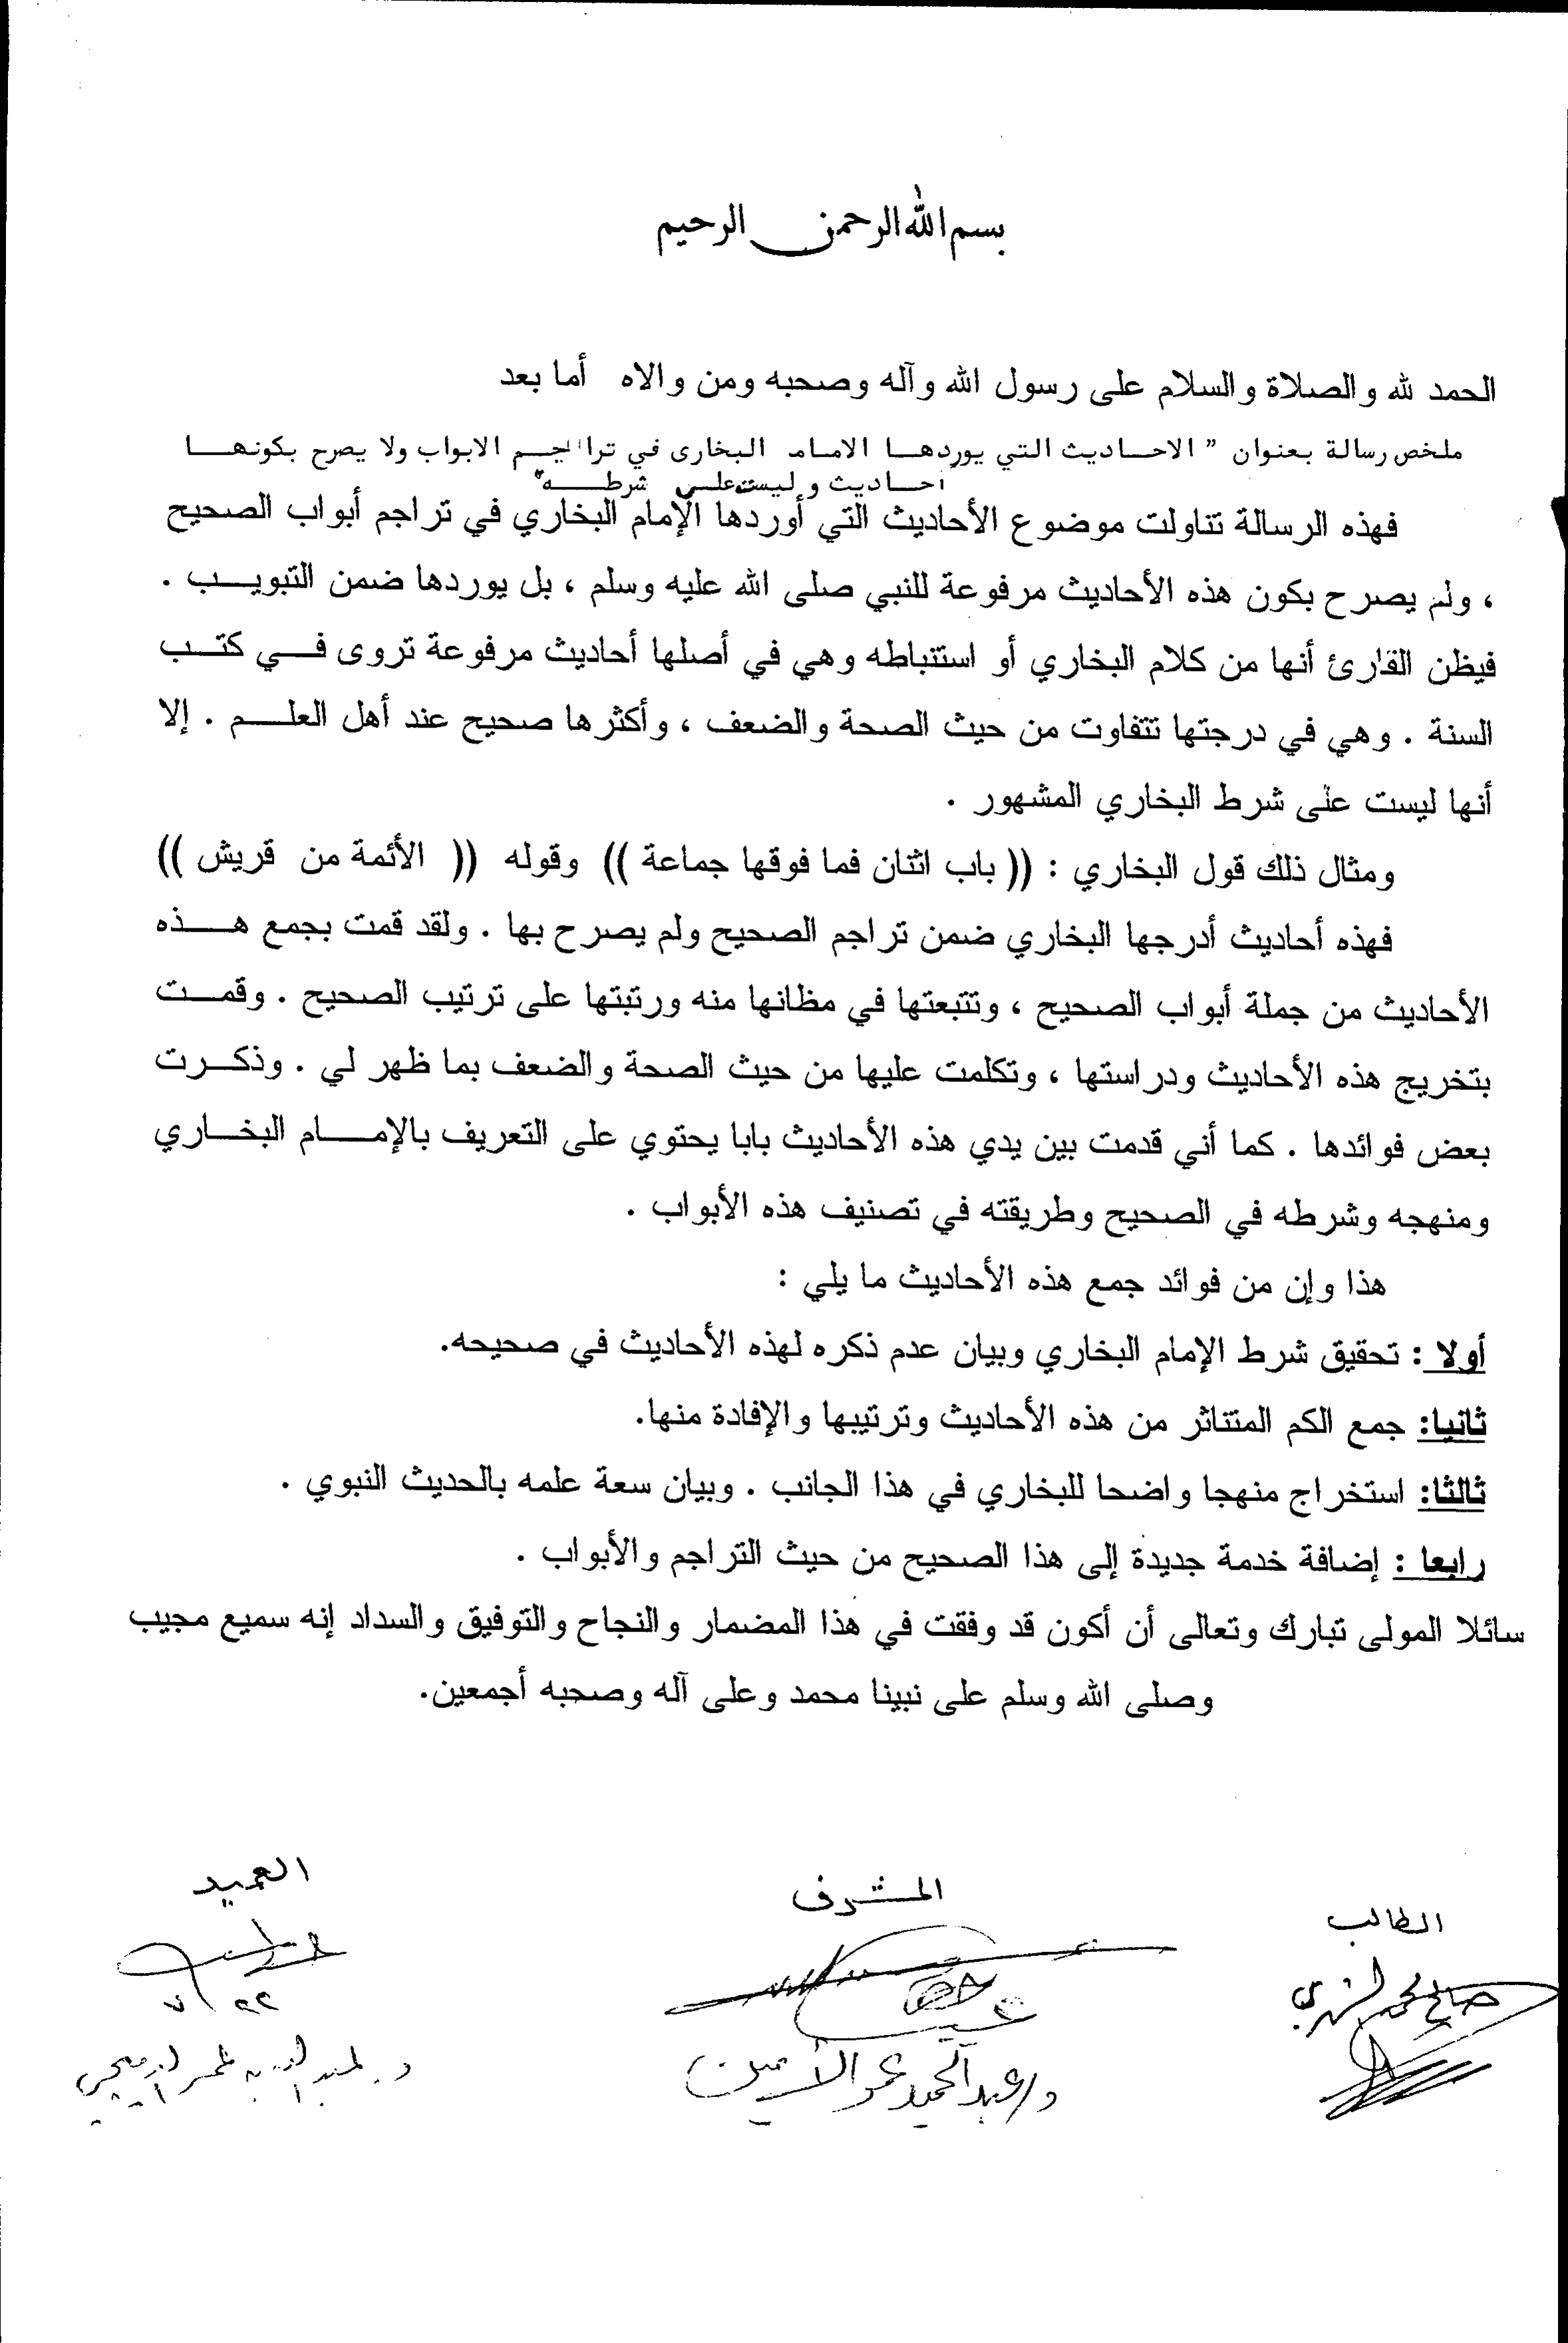 بسم الله الرحمن الرحيم
الحمد لله والصلاة والسلام على رسول الله وآله وصحبه ومن والاه أما بعد
ملخص رسالة بعنوان " الاحاديث التي يوردها الامام البخارى في تراجم الابواب ولا يصرح بكونها
أحاديث وليست على شرطه"
فهذه الرسالة تناولت موضوع الأحاديث التي أوردها الإمام البخاري في تراجم أبواب الصحيح
، ولم يصرح بكون هذه الأحاديث مرفوعة للنبي صلى الله عليه وسلم ، بل يوردها ضمن التبويب .
فيظن القارئ أنها من كلام البخاري أو استنباطه وهي في أصلها أحاديث مرفوعة تروى في كتب
السنة . وهي في درجتها تتفاوت من حيث الصحة والضعف ، وأكثرها صحيح عند أهل العلم . إلا
أنها ليست على شرط البخاري المشهور .
ومثال ذلك قول البخاري : (( باب اثنان فما فوقها جماعة )) وقوله (( الأئمة من قريش ))
فهذه أحاديث أدرجها البخاري ضمن تراجم الصحيح ولم يصرح بها . ولقد قمت بجمع هذه
الأحاديث من جملة أبواب الصحيح ، وتتبعتها في مظانها منه ورتبتها على ترتيب الصحيح . وقمت
بتخريج هذه الأحاديث ودراستها ، وتكلمت عليها من حيث الصحة والضعف بما ظهر لي . وذكرت
بعض فوائدها . كما أني قدمت بين يدي هذه الأحاديث بابا يحتوي على التعريف بالإمام البخاري
ومنهجه وشرطه في الصحيح وطريقته في تصنيف هذه الأبواب .
هذا وإن من فوائد جمع هذه الأحاديث ما يلي :
أولا : تحقيق شرط الإمام البخاري وبيان عدم ذكره لهذه الأحاديث في صحيحه.
ثانيا: جمع الكم المتناثر من هذه الأحاديث وترتيبها والإفادة منها.
ثالثا: استخراج منهجا واضحا للبخاري في هذا الجانب . وبيان سعة علمه بالحديث النبوي .
رابعا : إضافة خدمة جديدة إلى هذا الصحيح من حيث التراجم والأبواب .
سائلا المولى تبارك وتعالى أن أكون قد وفقت في هذا المضمار والنجاح والتوفيق والسداد إنه سميع مجيب
وصلى الله وسلم على نبينا محمد وعلى آله وصحبه أجمعين.
الطالب المشرف العميد
٢٢/٧
د/عبد الحميد عمر الأمين